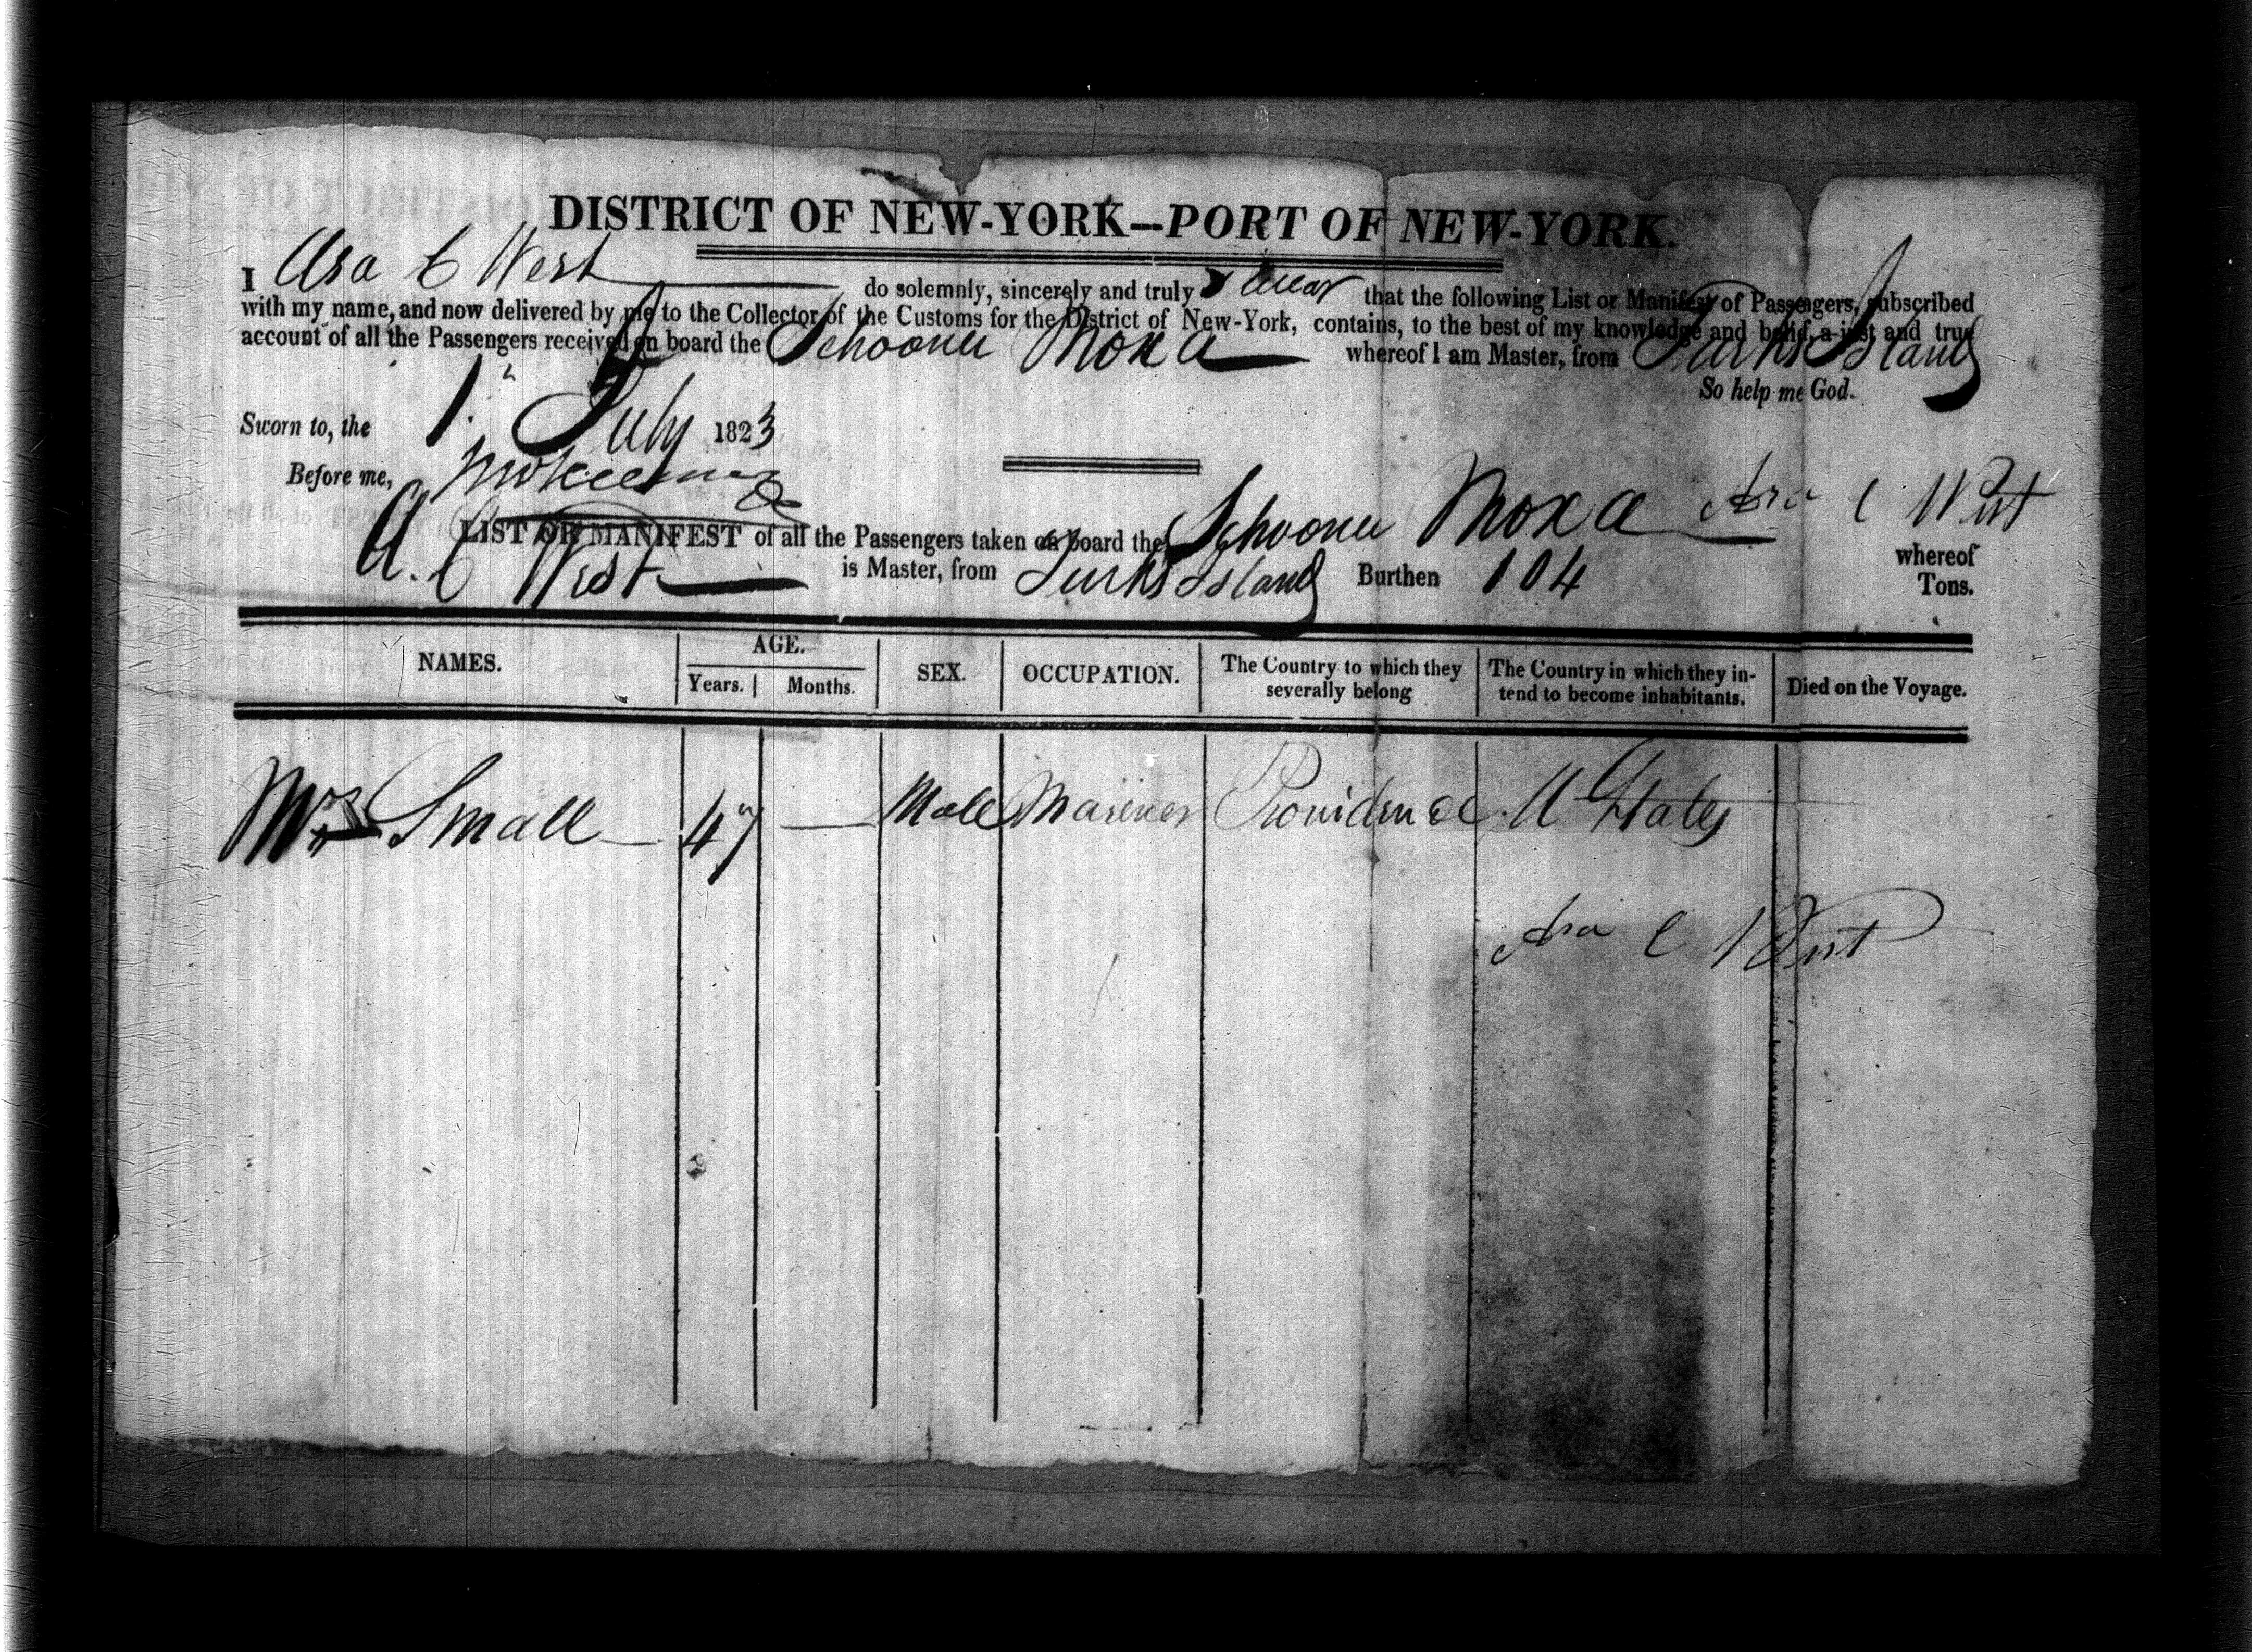 DISTRICT OF NEW-YORK—PORT OF NEW-YORK.
I Asa C West do solemnly, sincerely and truly swear that the following List or Manifest of Passengers, subscribed
with my name, and now delivered by me to the Collector of the Customs for the District of New-York, contains, to the best of my knowledge and belief, a just and true
account of all the Passengers received on board the Schooner Moxa whereof I am Master, from Turks Island
So help me God.
Sworn to, the 1st July 1823
Before me,
Asa C West
LIST OR MANIFEST of all the Passengers taken on board the Schooner Moxa whereof
A. C West is Master, from Turks Island Burthen 104 Tons.
NAMES. AGE. SEX. OCCUPATION. The Country to which they severally belong The Country in which they intend to become inhabitants. Died on the Voyage.
Years. Months.
Small 47 — Male Mariner Providence U States
Asa C West